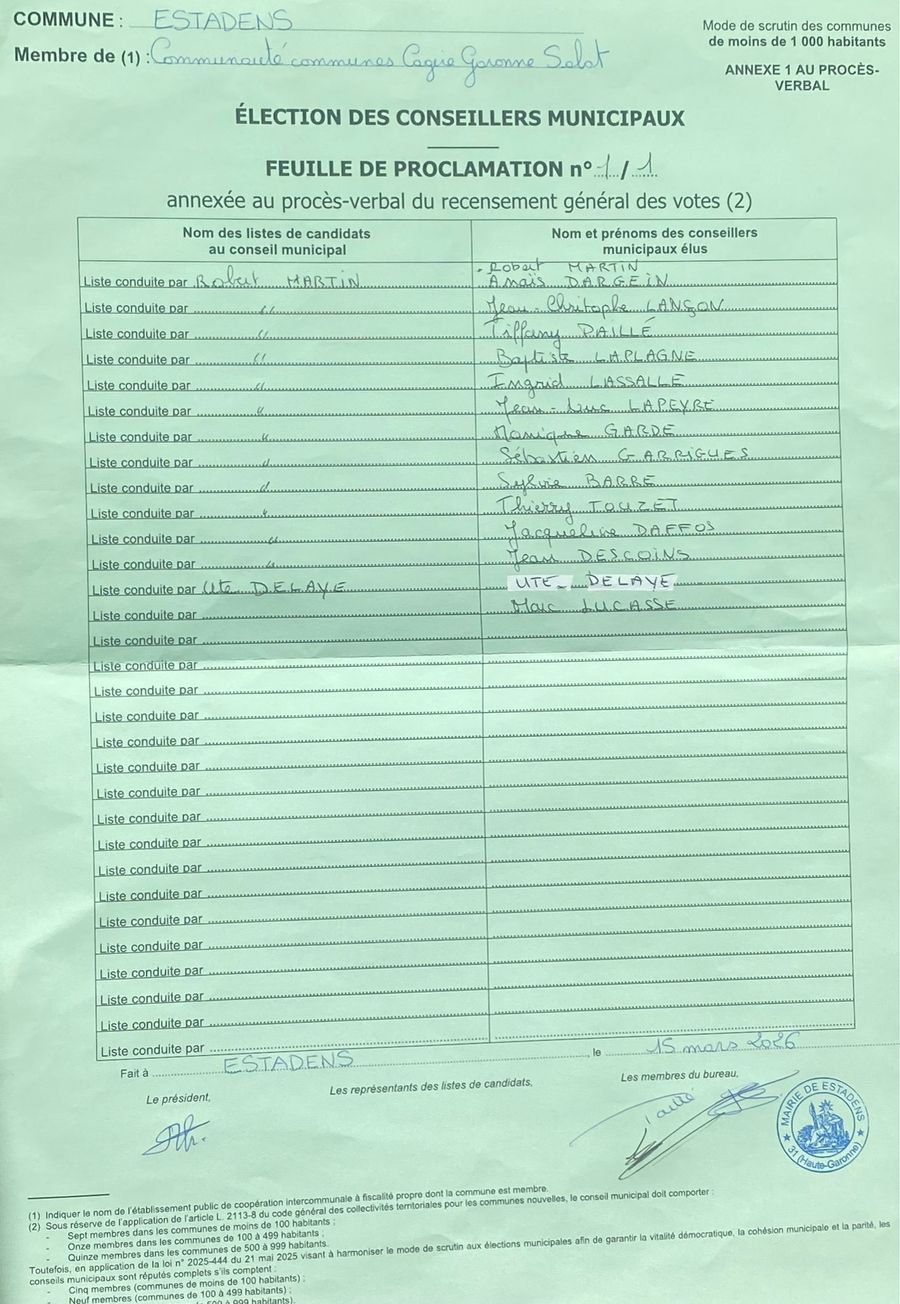 COMMUNE : ESTADENS
Membre de (1) : Communauté communes Cagire Garonne Salat
Mode de scrutin des communes
de moins de 1 000 habitants
ANNEXE 1 AU PROCÈS-
VERBAL
ÉLECTION DES CONSEILLERS MUNICIPAUX
FEUILLE DE PROCLAMATION n° 1 / 1
annexée au procès-verbal du recensement général des votes (2)
Nom des listes de candidats
au conseil municipal
Nom et prénoms des conseillers
municipaux élus
- Robert MARTIN
Liste conduite par Robert MARTIN Anaïs DARGEIN
Liste conduite par " Jean-Christophe LANÇON
Liste conduite par " Tiffany PAILLÉ
Liste conduite par " Baptiste LAPLAGNE
Liste conduite par " Ingrid LASSALLE
Liste conduite par " Jean-Luc LAPEYRE
Liste conduite par " Monique GARDE
Liste conduite par " Sébastien GARRIGUES
Liste conduite par " Sylvie BARRE
Liste conduite par " Thierry TOUZET
Liste conduite par " Jacqueline DAFFOS
Liste conduite par " Jean DESCOINS
Liste conduite par Ute DELAYE UTE - DELAYE
Liste conduite par Marc LUCASSE
Liste conduite par
Liste conduite par
Liste conduite par
Liste conduite par
Liste conduite par
Liste conduite par
Liste conduite par
Liste conduite par
Liste conduite par
Liste conduite par
Liste conduite par
Liste conduite par
Liste conduite par
Liste conduite par
Liste conduite par
Liste conduite par
Liste conduite par
Fait à ESTADENS, le 15 mars 2026
Le président,
Les représentants des listes de candidats,
Les membres du bureau,
MAIRIE DE ESTADENS
31 (Haute-Garonne)
(1) Indiquer le nom de l'établissement public de coopération intercommunale à fiscalité propre dont la commune est membre.
(2) Sous réserve de l'application de l'article L. 2113-8 du code général des collectivités territoriales pour les communes nouvelles, le conseil municipal doit comporter :
- Sept membres dans les communes de moins de 100 habitants ;
- Onze membres dans les communes de 100 à 499 habitants ;
- Quinze membres dans les communes de 500 à 999 habitants.
Toutefois, en application de la loi n° 2025-444 du 21 mai 2025 visant à harmoniser le mode de scrutin aux élections municipales afin de garantir la vitalité démocratique, la cohésion municipale et la parité, les
conseils municipaux sont réputés complets s'ils comptent :
- Cinq membres (communes de moins de 100 habitants) ;
- Neuf membres (communes de 100 à 499 habitants) ;